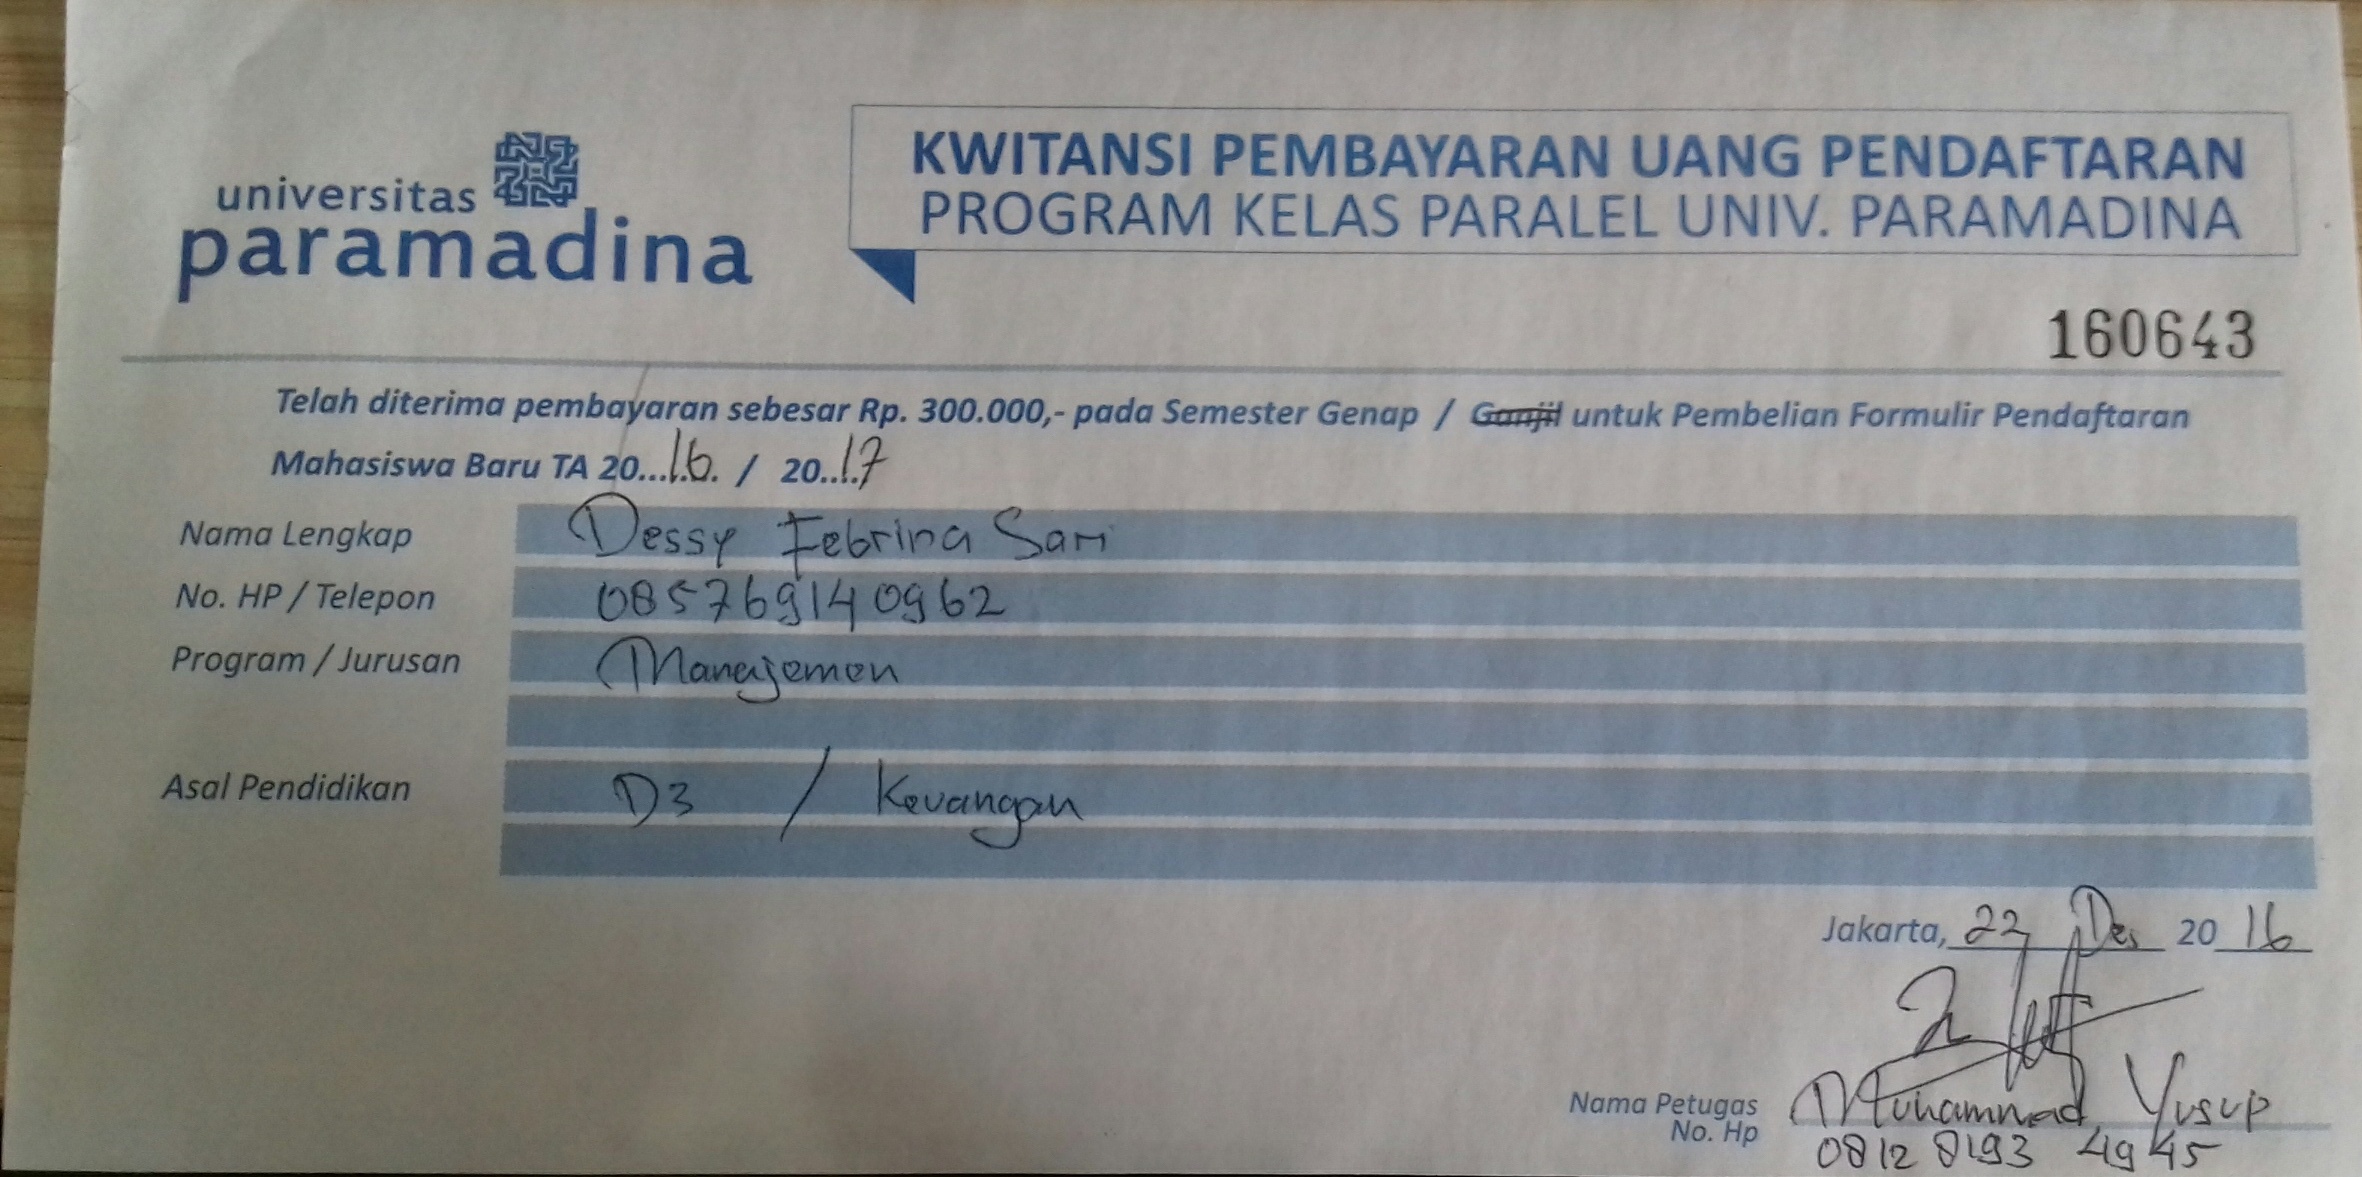 universitas
paramadina
KWITANSI PEMBAYARAN UANG PENDAFTARAN
PROGRAM KELAS PARALEL UNIV. PARAMADINA
160643
Telah diterima pembayaran sebesar Rp. 300.000,- pada Semester Genap / Ganjil untuk Pembelian Formulir Pendaftaran
Mahasiswa Baru TA 20...16. / 20..17
Nama Lengkap Dessy Febrina Sari
No. HP / Telepon 085769140962
Program / Jurusan Manajemen
Asal Pendidikan D3 / Keuangan
Jakarta, 22 Des 20 16
Nama Petugas Muhammad Yusup
No. Hp 0812 8193 4945